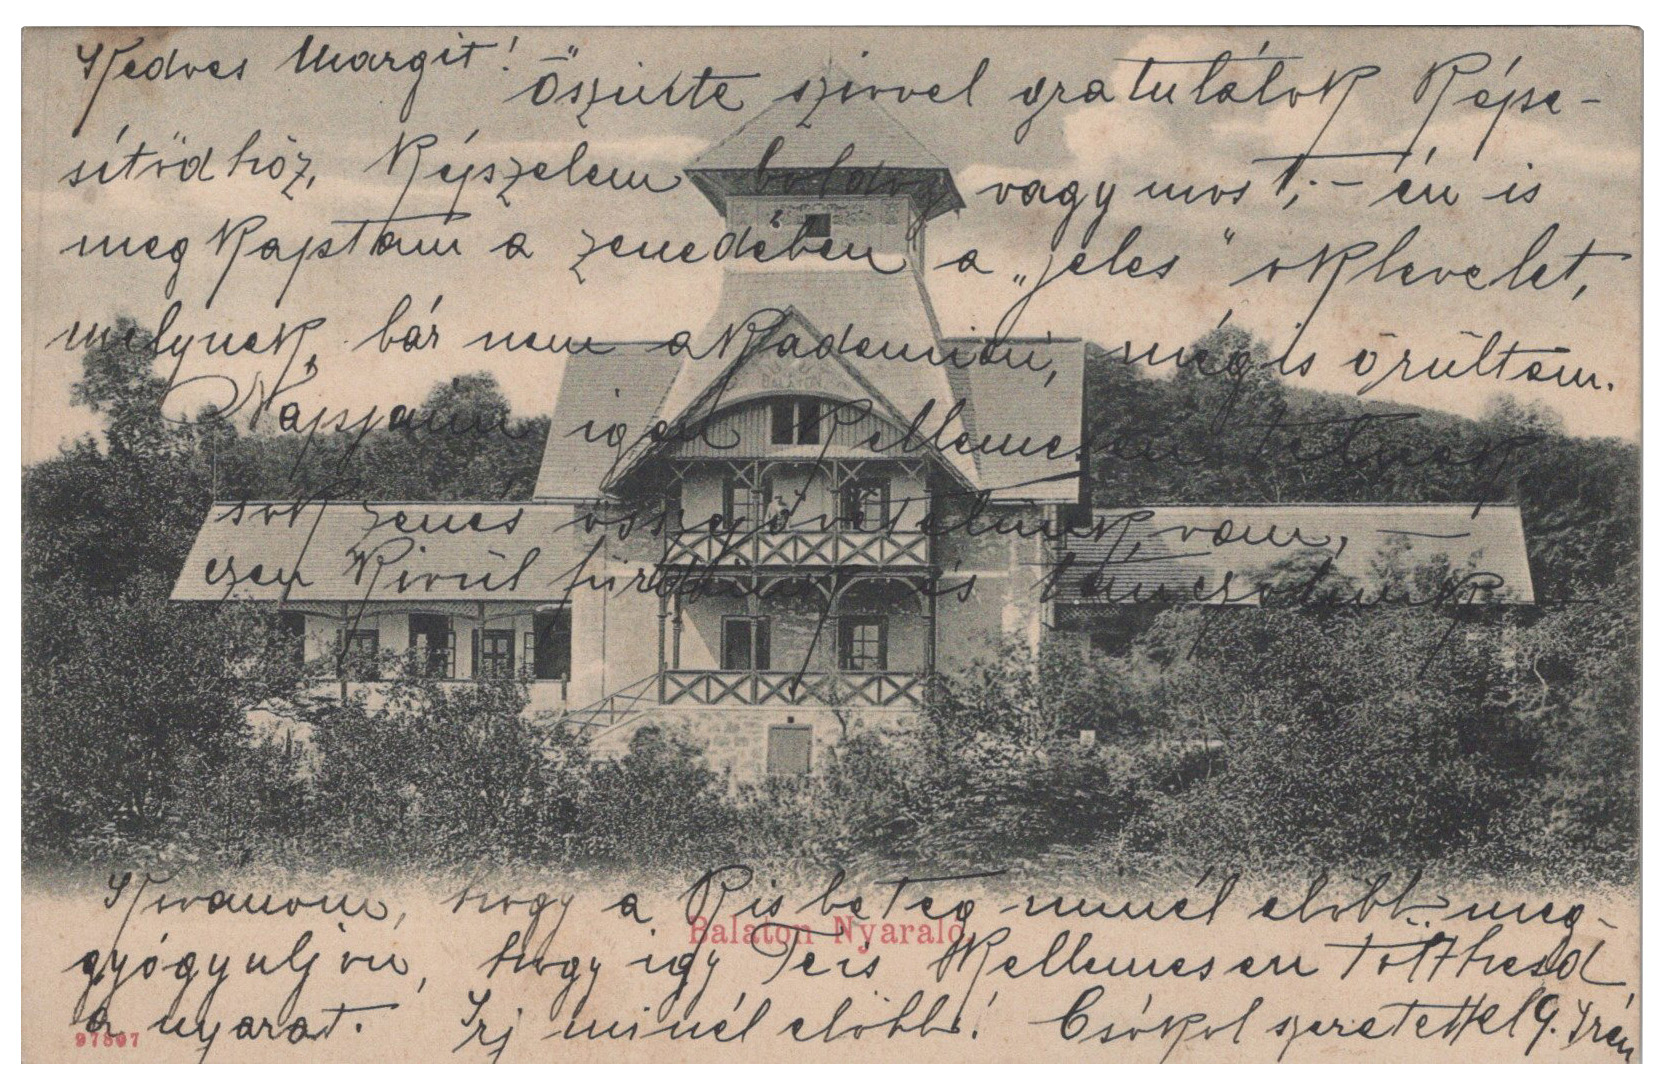 Kedves Margit!
Őszinte szivvel gratulálok képe-
sítődhöz, képzelem boldog vagy most, – én is
megkaptam a zenedében a „jeles" oklevelet,
melynek, bár nem akademiai, mégis örültem.
Napjaim igen kellemesen telnek
sok zenés összejövetelünk van, —
ezen kivül fürdünk és tánczolunk
BALATON
Kivanom, hogy a kis beteg minél előbb meg-
Balaton Nyaraló.
gyógyuljon, hogy igy Te is kellemesen tölthesd
a nyarat. Irj minél előbb! Csókol szeretettel G. Irén
97807